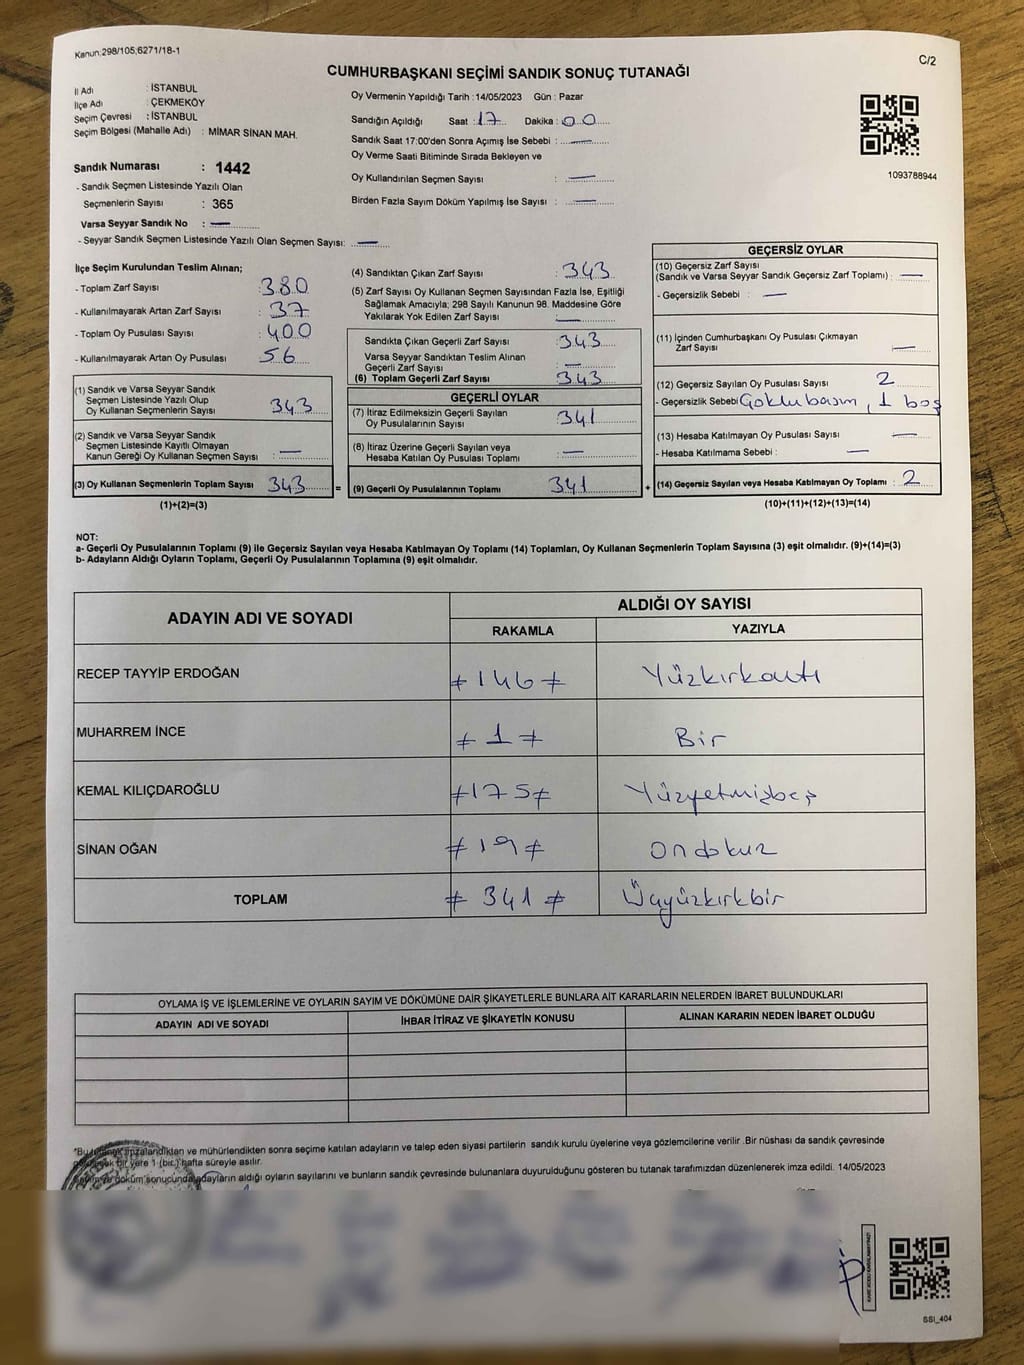 Kanun:298/105,6271/18-1
C/2
CUMHURBAŞKANI SEÇİMİ SANDIK SONUÇ TUTANAĞI
İl Adı : İSTANBUL
İlçe Adı : ÇEKMEKÖY
Seçim Çevresi : İSTANBUL
Seçim Bölgesi (Mahalle Adı) : MİMAR SİNAN MAH.
Sandık Numarası : 1442
- Sandık Seçmen Listesinde Yazılı Olan
Seçmenlerin Sayısı : 365
Varsa Seyyar Sandık No : —
- Seyyar Sandık Seçmen Listesinde Yazılı Olan Seçmen Sayısı: —
Oy Vermenin Yapıldığı Tarih : 14/05/2023 Gün : Pazar
Sandığın Açıldığı Saat : 17 Dakika : 00
Sandık Saat 17:00'den Sonra Açımış İse Sebebi : —
Oy Verme Saati Bitiminde Sırada Bekleyen ve
Oy Kullandırılan Seçmen Sayısı : —
Birden Fazla Sayım Döküm Yapılmış İse Sayısı : —
1093788944
İlçe Seçim Kurulundan Teslim Alınan;
- Toplam Zarf Sayısı : 380
- Kullanılmayarak Artan Zarf Sayısı : 37
- Toplam Oy Pusulası Sayısı : 400
- Kullanılmayarak Artan Oy Pusulası : 56
(1) Sandık ve Varsa Seyyar Sandık
Seçmen Listesinde Yazılı Olup
Oy Kullanan Seçmenlerin Sayısı : 343
(2) Sandık ve Varsa Seyyar Sandık
Seçmen Listesinde Kayıtlı Olmayan
Kanun Gereği Oy Kullanan Seçmen Sayısı : —
(3) Oy Kullanan Seçmenlerin Toplam Sayısı : 343 =
(1)+(2)=(3)
(4) Sandıktan Çıkan Zarf Sayısı : 343
(5) Zarf Sayısı Oy Kullanan Seçmen Sayısından Fazla İse, Eşitliği
Sağlamak Amacıyla; 298 Sayılı Kanunun 98. Maddesine Göre
Yakılarak Yok Edilen Zarf Sayısı : —
Sandıkta Çıkan Geçerli Zarf Sayısı : 343
Varsa Seyyar Sandıktan Teslim Alınan
Geçerli Zarf Sayısı : —
(6) Toplam Geçerli Zarf Sayısı : 343
GEÇERLİ OYLAR
(7) İtiraz Edilmeksizin Geçerli Sayılan
Oy Pusulalarının Sayısı : 341
(8) İtiraz Üzerine Geçerli Sayılan veya
Hesaba Katılan Oy Pusulası Toplamı : —
(9) Geçerli Oy Pusulalarının Toplamı : 341 +
GEÇERSİZ OYLAR
(10) Geçersiz Zarf Sayısı
(Sandık ve Varsa Seyyar Sandık Geçersiz Zarf Toplamı) : —
- Geçersizlik Sebebi : —
(11) İçinden Cumhurbaşkanı Oy Pusulası Çıkmayan
Zarf Sayısı : —
(12) Geçersiz Sayılan Oy Pusulası Sayısı : 2
- Geçersizlik Sebebi Çoklu basım, 1 boş
(13) Hesaba Katılmayan Oy Pusulası Sayısı : —
- Hesaba Katılmama Sebebi : —
(14) Geçersiz Sayılan veya Hesaba Katılmayan Oy Toplamı : 2
(10)+(11)+(12)+(13)=(14)
NOT:
a- Geçerli Oy Pusulalarının Toplamı (9) ile Geçersiz Sayılan veya Hesaba Katılmayan Oy Toplamı (14) Toplamları, Oy Kullanan Seçmenlerin Toplam Sayısına (3) eşit olmalıdır. (9)+(14)=(3)
b- Adayların Aldığı Oyların Toplamı, Geçerli Oy Pusulalarının Toplamına (9) eşit olmalıdır.
ADAYIN ADI VE SOYADI
ALDIĞI OY SAYISI
RAKAMLA YAZIYLA
RECEP TAYYİP ERDOĞAN ≠146≠ Yüzkırkaltı
MUHARREM İNCE ≠1≠ Bir
KEMAL KILIÇDAROĞLU ≠175≠ Yüzyetmişbeş
SİNAN OĞAN ≠19≠ Ondokuz
TOPLAM ≠341≠ Üçyüzkırkbir
OYLAMA İŞ VE İŞLEMLERİNE VE OYLARIN SAYIM VE DÖKÜMÜNE DAİR ŞİKAYETLERLE BUNLARA AİT KARARLARIN NELERDEN İBARET BULUNDUKLARI
ADAYIN ADI VE SOYADI İHBAR İTİRAZ VE ŞİKAYETİN KONUSU ALINAN KARARIN NEDEN İBARET OLDUĞU
ve mühürlendikten sonra seçime katılan adayların ve talep eden siyasi partilerin sandık kurulu üyelerine veya gözlemcilerine verilir .Bir nüshası da sandık çevresinde
bir yere 1 (bir) hafta süreyle asılır.
döküm sonucunda adayların aldığı oyların sayılarını ve bunların sandık çevresinde bulunanlara duyurulduğunu gösteren bu tutanak tarafımızdan düzenlenerek imza edildi. 14/05/2023
SSI_404